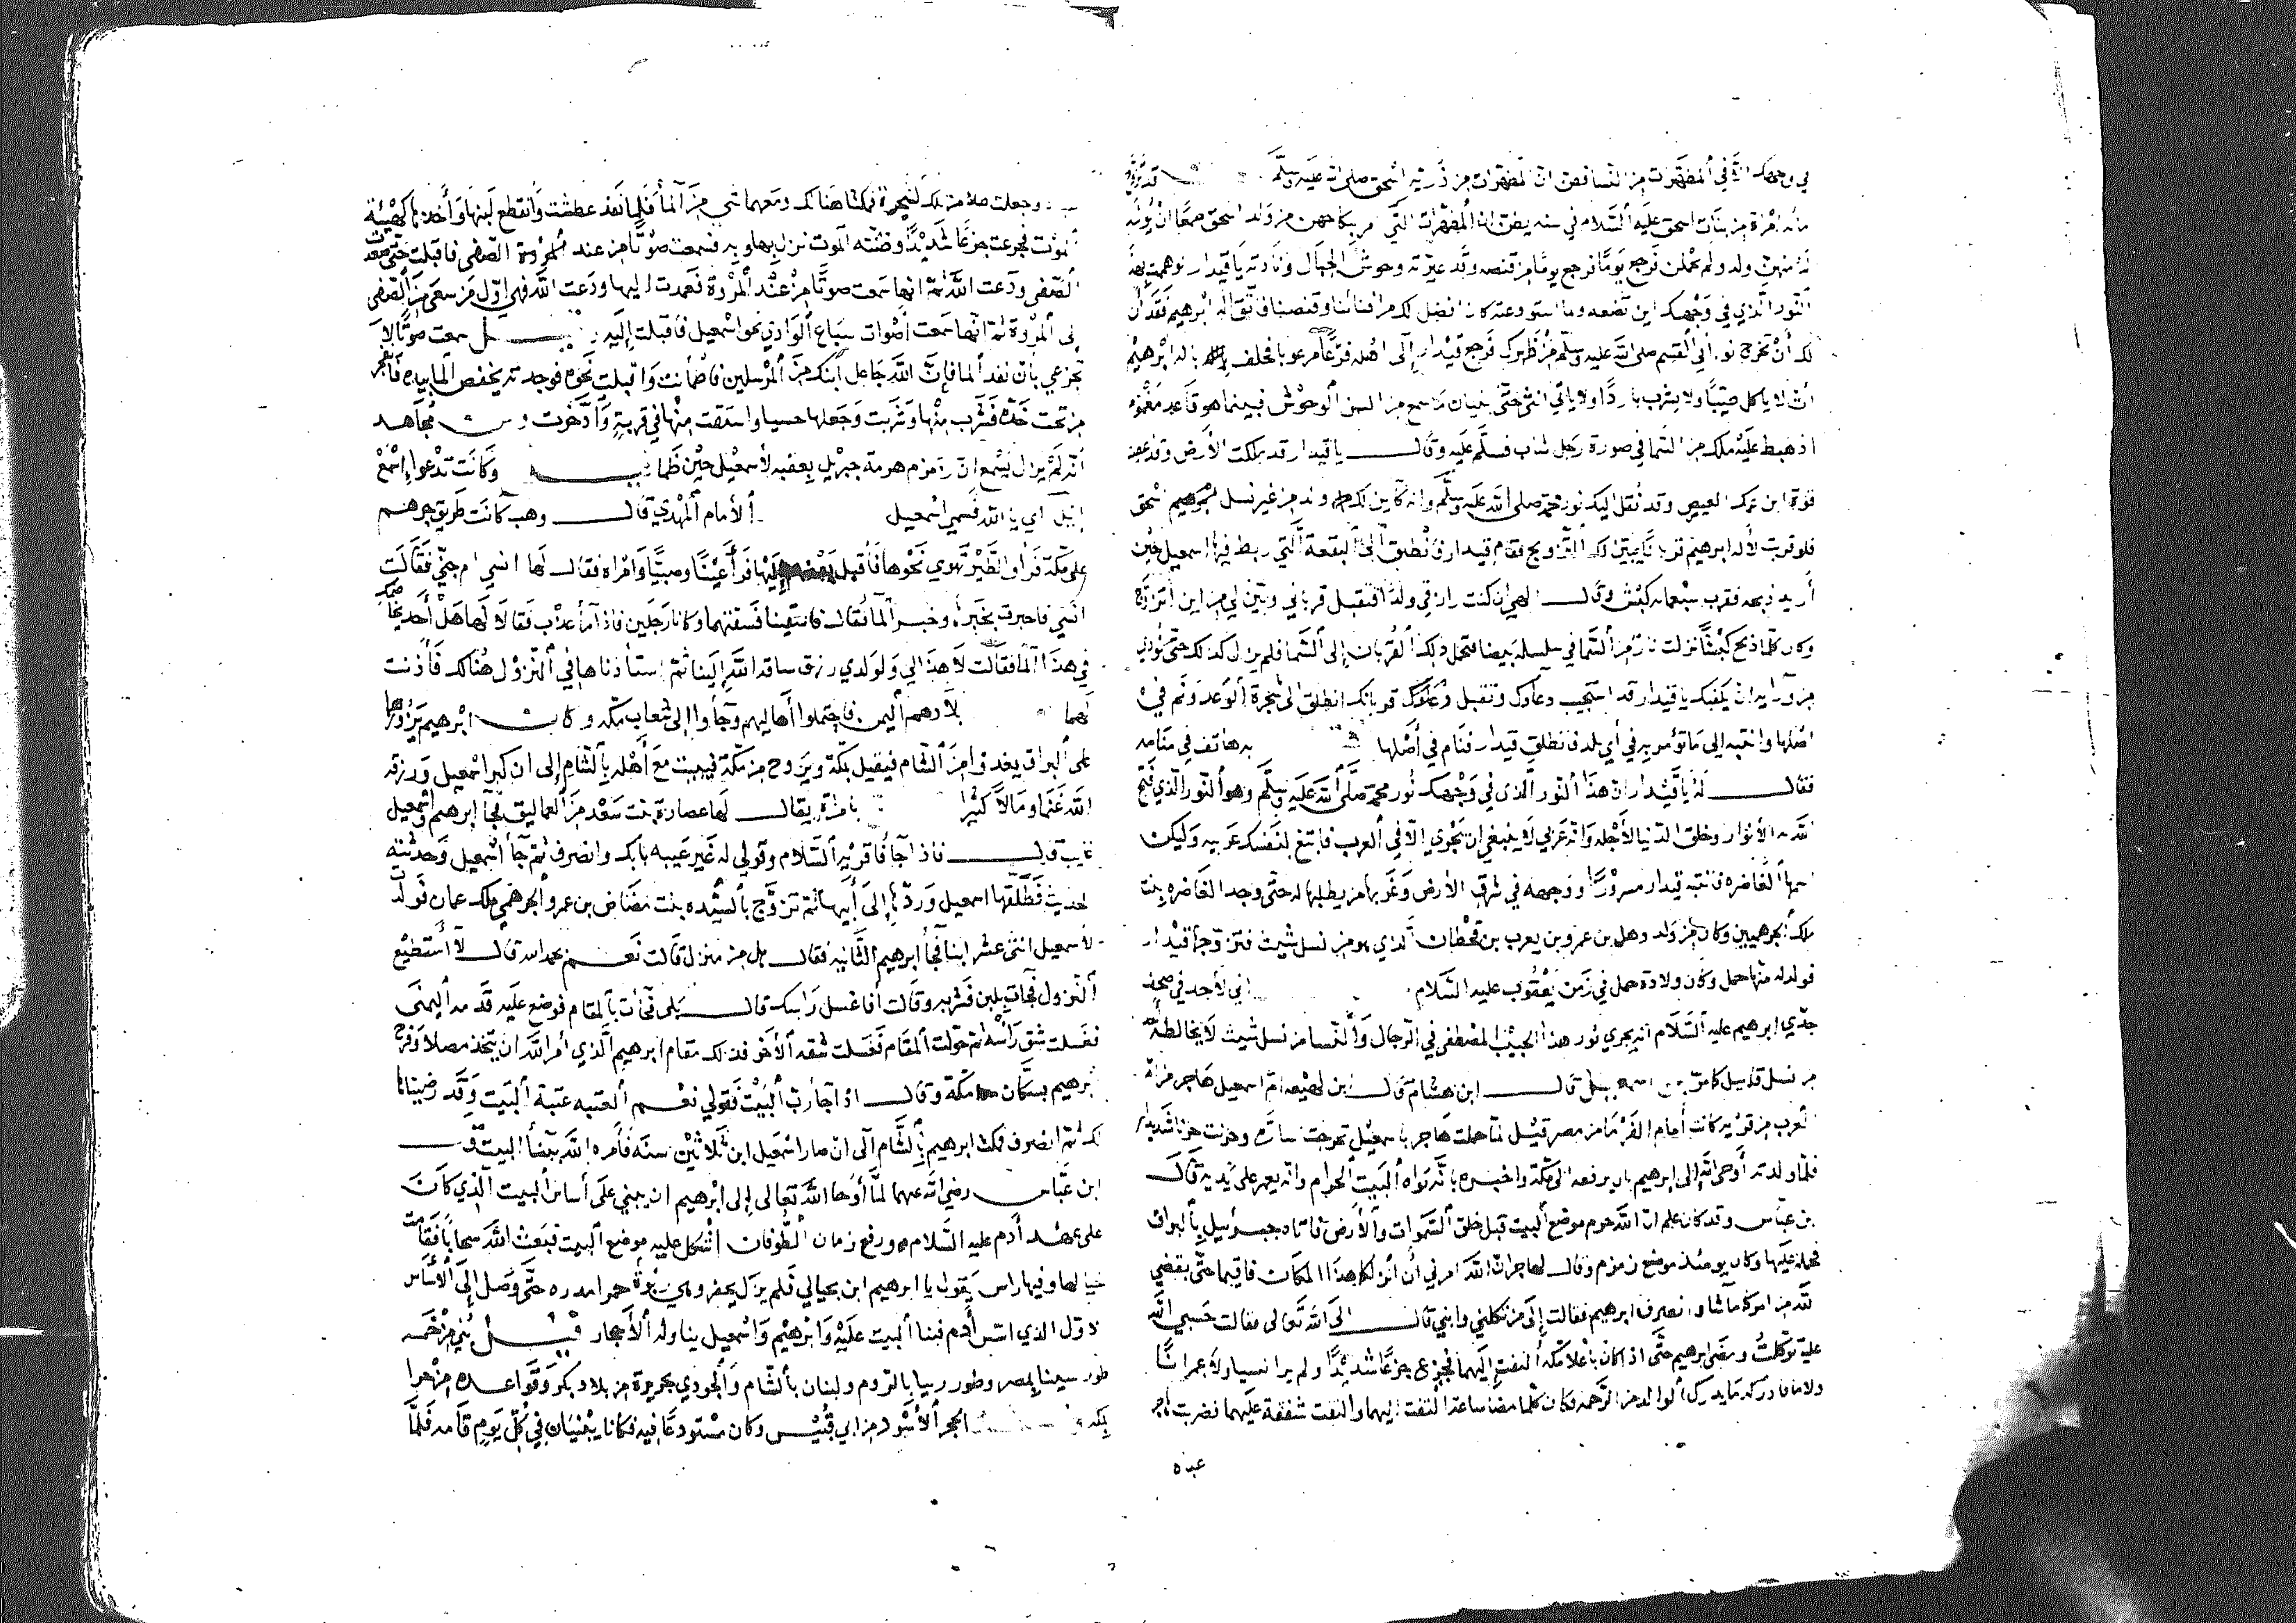 في وجهك الا في المطهرات من النسا فظن ان المطهرات من ذرية اسحق صلى الله عليه وسلم قد تزوج
مائة امراة من بنات اسحق عليه السلام في سنه يظن ان المطهرات التي من ولد اسحق طمعا ان يولد
له منهن ولد ولم يحملن فرجع يوما من قنصه وقد عيرته وحوش الجبال ونادته يا قيدار
النور الذي في وجهك اين تضعه وما استودعته كان افضل لك من وقنصنا فاتق اله ابرهيم فقد ان
لك ان تخرج نور ابي القسم صلى الله عليه وسلم من ظهرك فرجع قيدار الى اهله فزعا مرعوبا فحلف باله ابرهيم
ان لا ياكل طيبا ولا يشرب باردا ولا ياتي انثى حتى ما سمع من السن الوحوش فبينما هو قاعد مغموم
اذ هبط عليه ملك من السما في صورة رجل شاب فسلم عليه وقال يا قيدار قد ملكت الارض وقد
قوة ابن عمك العيص وقد نقل اليك نور محمد صلى الله عليه وسلم وانه كاين لك ولد من غير نسل اسحق
فلو قربت لاله ابرهيم قربانا يبين لك التزويج فقام قيدار فانطلق الى البقعة التي ربط فيها اسمعيل حين
أريد ذبحه فقرب سبعمائه كبش وقال الهي ان كنت رازقي ولدا فتقبل قرباني وبين لي من اين اتزوج
وكان كلما ذبح كبشا نزلت نار من السما في سلسله بيضا فتحمل ذلك القربان الى السما فلم يزل كذلك حتى نودي
من ورايه ان يكفيك يا قيدار قد استجيب دعاوك وتقبل قربانك انطلق الى شجرة الوعد ونم في
اصلها وانتبه الى ما تؤمر به في أي بلد فانطلق قيدار فنام في أصلها به هاتف في منامه
فقال له يا قيدار ان هذا النور الذي في وجهك نور محمد صلى الله عليه وسلم وهو النور الذي فتح
الله به الانوار وخلق الدنيا لأجله وانه عربي لا ينبغي ان يجري الا في العرب فابتغ لنفسك عربيه وليكن
اسمها الغاضره فانتبه قيدار مسرورا ووجهه في شرق الارض وغربها من يطلبها له حتى وجد الغاضره بنت
ملك الجرهميين وكان من ولد وهل بن عمرو بن يعرب بن قحطان الذي هو من نسل شيث فتزوجها قيدار
فولد له منها حمل وكان ولادة حمل في زمن يعقوب عليه السلام اني لأجد في صحف
جدي ابرهيم عليه السلام انه يجري نور هذا الحبيب المصطفى في الرجال والنسا من نسل شيث لا يخالطه
من نسل قابيل قال ابن هشام قال ابن لهيعه ام اسمعيل هاجر من ام
العرب من قريه كانت أمام الفرما من مصر قيل لما حملت هاجر باسمعيل سارة وحزنت حزنا شديدا
فلما ولدته أوحى الله الى ابرهيم بان يرفعه الى مكة واخبره بانه بواه البيت الحرام وانه يعمر على يديه قال
بن عباس وقد كان علم ان الله حرم موضع البيت قبل خلق السموات والأرض فاتاه جبرئيل بالبراق
فحمله عليها وكان يومئذ موضع زمزم وقال لهاجر ان الله امرني ان انزلكما هذا المكان فاقيما حتى يقضي
الله من امركما ما شا وانصرف ابرهيم فقالت الى من تكلني وابني قال الى الله تعالى فقالت حسبي الله
عليه توكلت ومضى ابرهيم حتى اذ كان باعلا مكه التفت اليهما فجزع جزعا شديدا ولم ير انسيا ولا عمرانا
ولا ما فادركه ما يدرك الوالد من الرحمه فكان كلما مضا ساعة التفت اليهما والتفت شفقة عليهما فضربت هاجر
عبده
وجعلت تلك الشجرة فمكثا هنالك ومعهما شي من الما فلما نفذ عطشت وانقطع لبنها وأخذها كهيئة
الموت فجزعت جزعا شديدا وظنته الموت نزل بها وبه فسمعت صوتا من عند المروة الصفى فاقبلت حتى صعدت
الصفى ودعت الله ثم انها سمعت صوتا من عند المروة فعمدت اليها ودعت الله فهي اول من سعى من الصفى
الى المروة ثم انها سمعت أصوات سباع الوادي نحو اسمعيل فاقبلت إليه سمعت صوتا لا
تجزعي بان نفد الما فان الله جاعل ابنك من المرسلين فاطمأنت واقبلت نحوه فوجدته يفحص الما بيده فانفجر
من تحت خده فشرب منها وشربت وجعلها حسيا واستقت منها في قربة وادخرت مجاهد
انه لم يزل يسمع ان زمزم هزمة جبريل بعقبه لأسمعيل حين ظما وكانت تدعوا اسمع
ايل أي يا الله فسمي اسمعيل الأمام المهدي قال وهب كانت طريق جرهم
على مكة فراوا الطير تهوي نحوها فأقبل بعضهم اليها فرأ عينا وصبيا وامراه فقال لها انسي ام جني فقالت
انسي فاخبرت بخبره وخبر الما فقال فاسقينا فسقتهما وكانا رجلين فاذا ما عذب فقالا لها هل أحد يخاصمك
في هذا الما فقالت لا هذا لي ولولدي رزق ساقه الله إلينا ثم استأذناها في النزول هنالك فأذنت
لهما بلادهم اليمن فاحتملوا أهاليهم وجاوا الى شعاب مكه وكان ابرهيم يزورها
على البراق يغدوا من الشام فيقيل بمكة ويروح من مكة فيبيت مع أهله بالشام إلى ان كبر اسمعيل ورزقه
الله غنما ومالا كثيرا بامراة يقال لها عصارة بنت سعد من العماليق فجا ابرهيم واسمعيل
غايب قال فاذا جا فاقريه السلام وقولي له غير عتبه بابك وانصرف ثم جا اسمعيل وحدثته
الحديث فطلقها اسمعيل وردها إلى أبيها ثم تزوج بالسيده بنت مضاض بن عمرو الجرهمي ملك عمان فولد
لاسمعيل اثنى عشر ابنا فجا ابرهيم الثانيه فقال هل من منزل قالت نعم بحمد الله قال لا أستطيع
النزول فجات بلبن فشربه وقالت أفا غسل راسك قال بلى فجات بالمقام فوضع عليه قدمه اليمنى
فغسلت شق رأسه ثم حولت المقام فغسلت شقه الأخر فذلك مقام ابرهيم الذي امر الله ان يتخذ مصلا وفرح
ابرهيم بسكان مكة وقال اذا جا رب البيت فقولي نعم العتبه عتبة البيت وقد رضيناها
لك ثم انصرف فمكث ابرهيم بالشام الى ان صار اسمعيل ابن ثلاثين سنه فأمره الله ببنا البيت
ابن عباس رضي الله عنهما لما أوحا الله تعالى إلى ابرهيم ان يبني على أساس البيت الذي كان
على عهد أدم عليه السلام ورفع زمان الطوفان اشكل عليه موضع البيت فبعث الله سحابا فقامت
حيالها وفيها راس يقول يا ابرهيم ابن بحيالي فلم يزل يحفر وهي ربوة حمرا مدره حتى وصل إلى الأساس
لاول الذي اسس أدم فبنا البيت عليه وابرهيم واسمعيل يناوله الأحجار قيل بني من خمسه
طور سينا بمصر وطور ريتا بالروم ولبنان بالشام والجودي بجزيرة من بلاد بكر وقواعده من حرا
بمكه الحجر الأسود من ابي قبيس وكان مستودعا فيه فكانا يبنيان في كل يوم قامه فلما